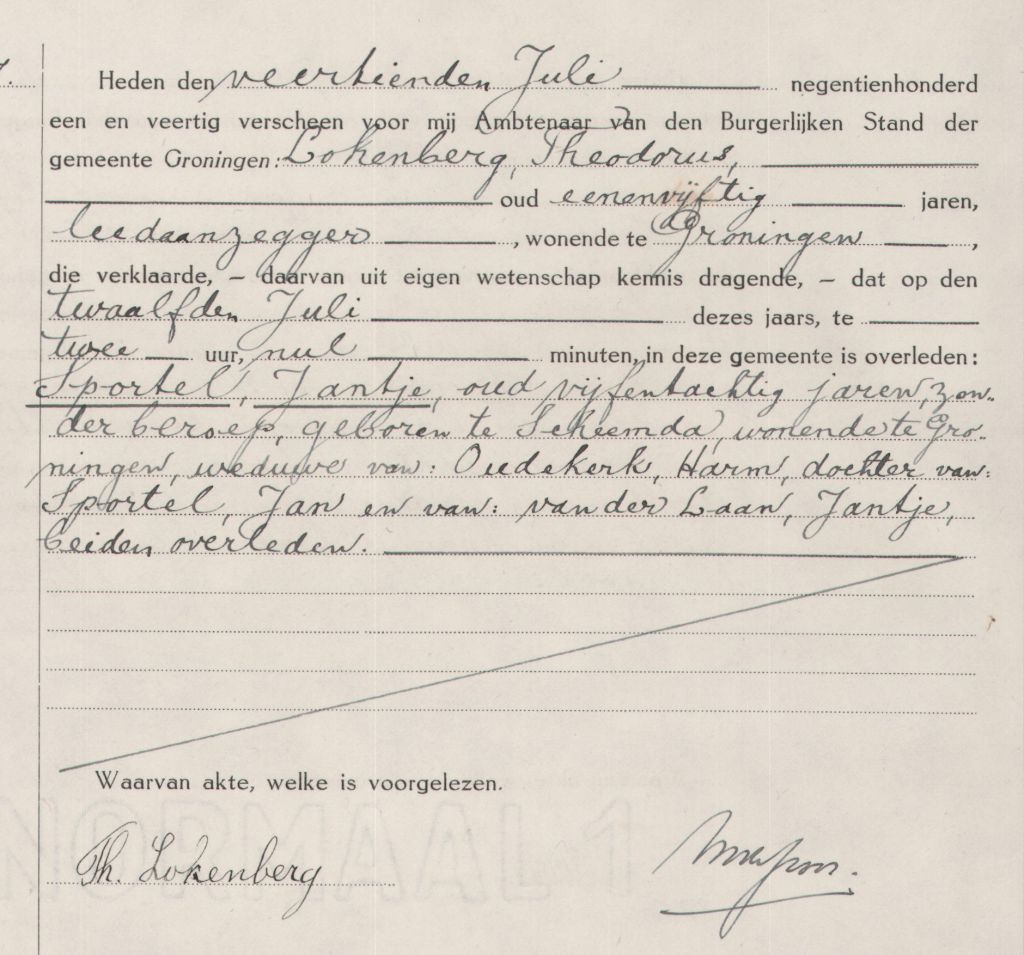 Heden den veertienden Juli negentienhonderd
een en veertig verscheen voor mij Ambtenaar van den Burgerlijken Stand der
gemeente Groningen: Lokenberg, Theodorus,
oud eenenvijftig jaren,
leedaanzegger, wonende te Groningen,
die verklaarde, – daarvan uit eigen wetenschap kennis dragende, – dat op den
twaalfden Juli dezes jaars, te
twee uur, nul minuten, in deze gemeente is overleden:
Sportel, Jantje, oud vijfentachtig jaren, zon-
der beroep, geboren te Scheemda, wonende te Gro-
ningen, weduwe van: Oudekerk, Harm, dochter van:
Sportel, Jan en van: van der Laan, Jantje,
beiden overleden.
Waarvan akte, welke is voorgelezen.
NORMAAL 1
Th. Lokenberg